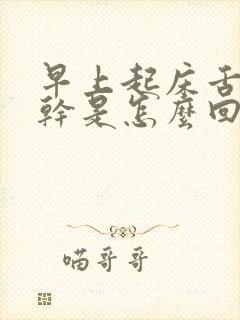 早上起床舌
幹是怎麼回
喵哥哥